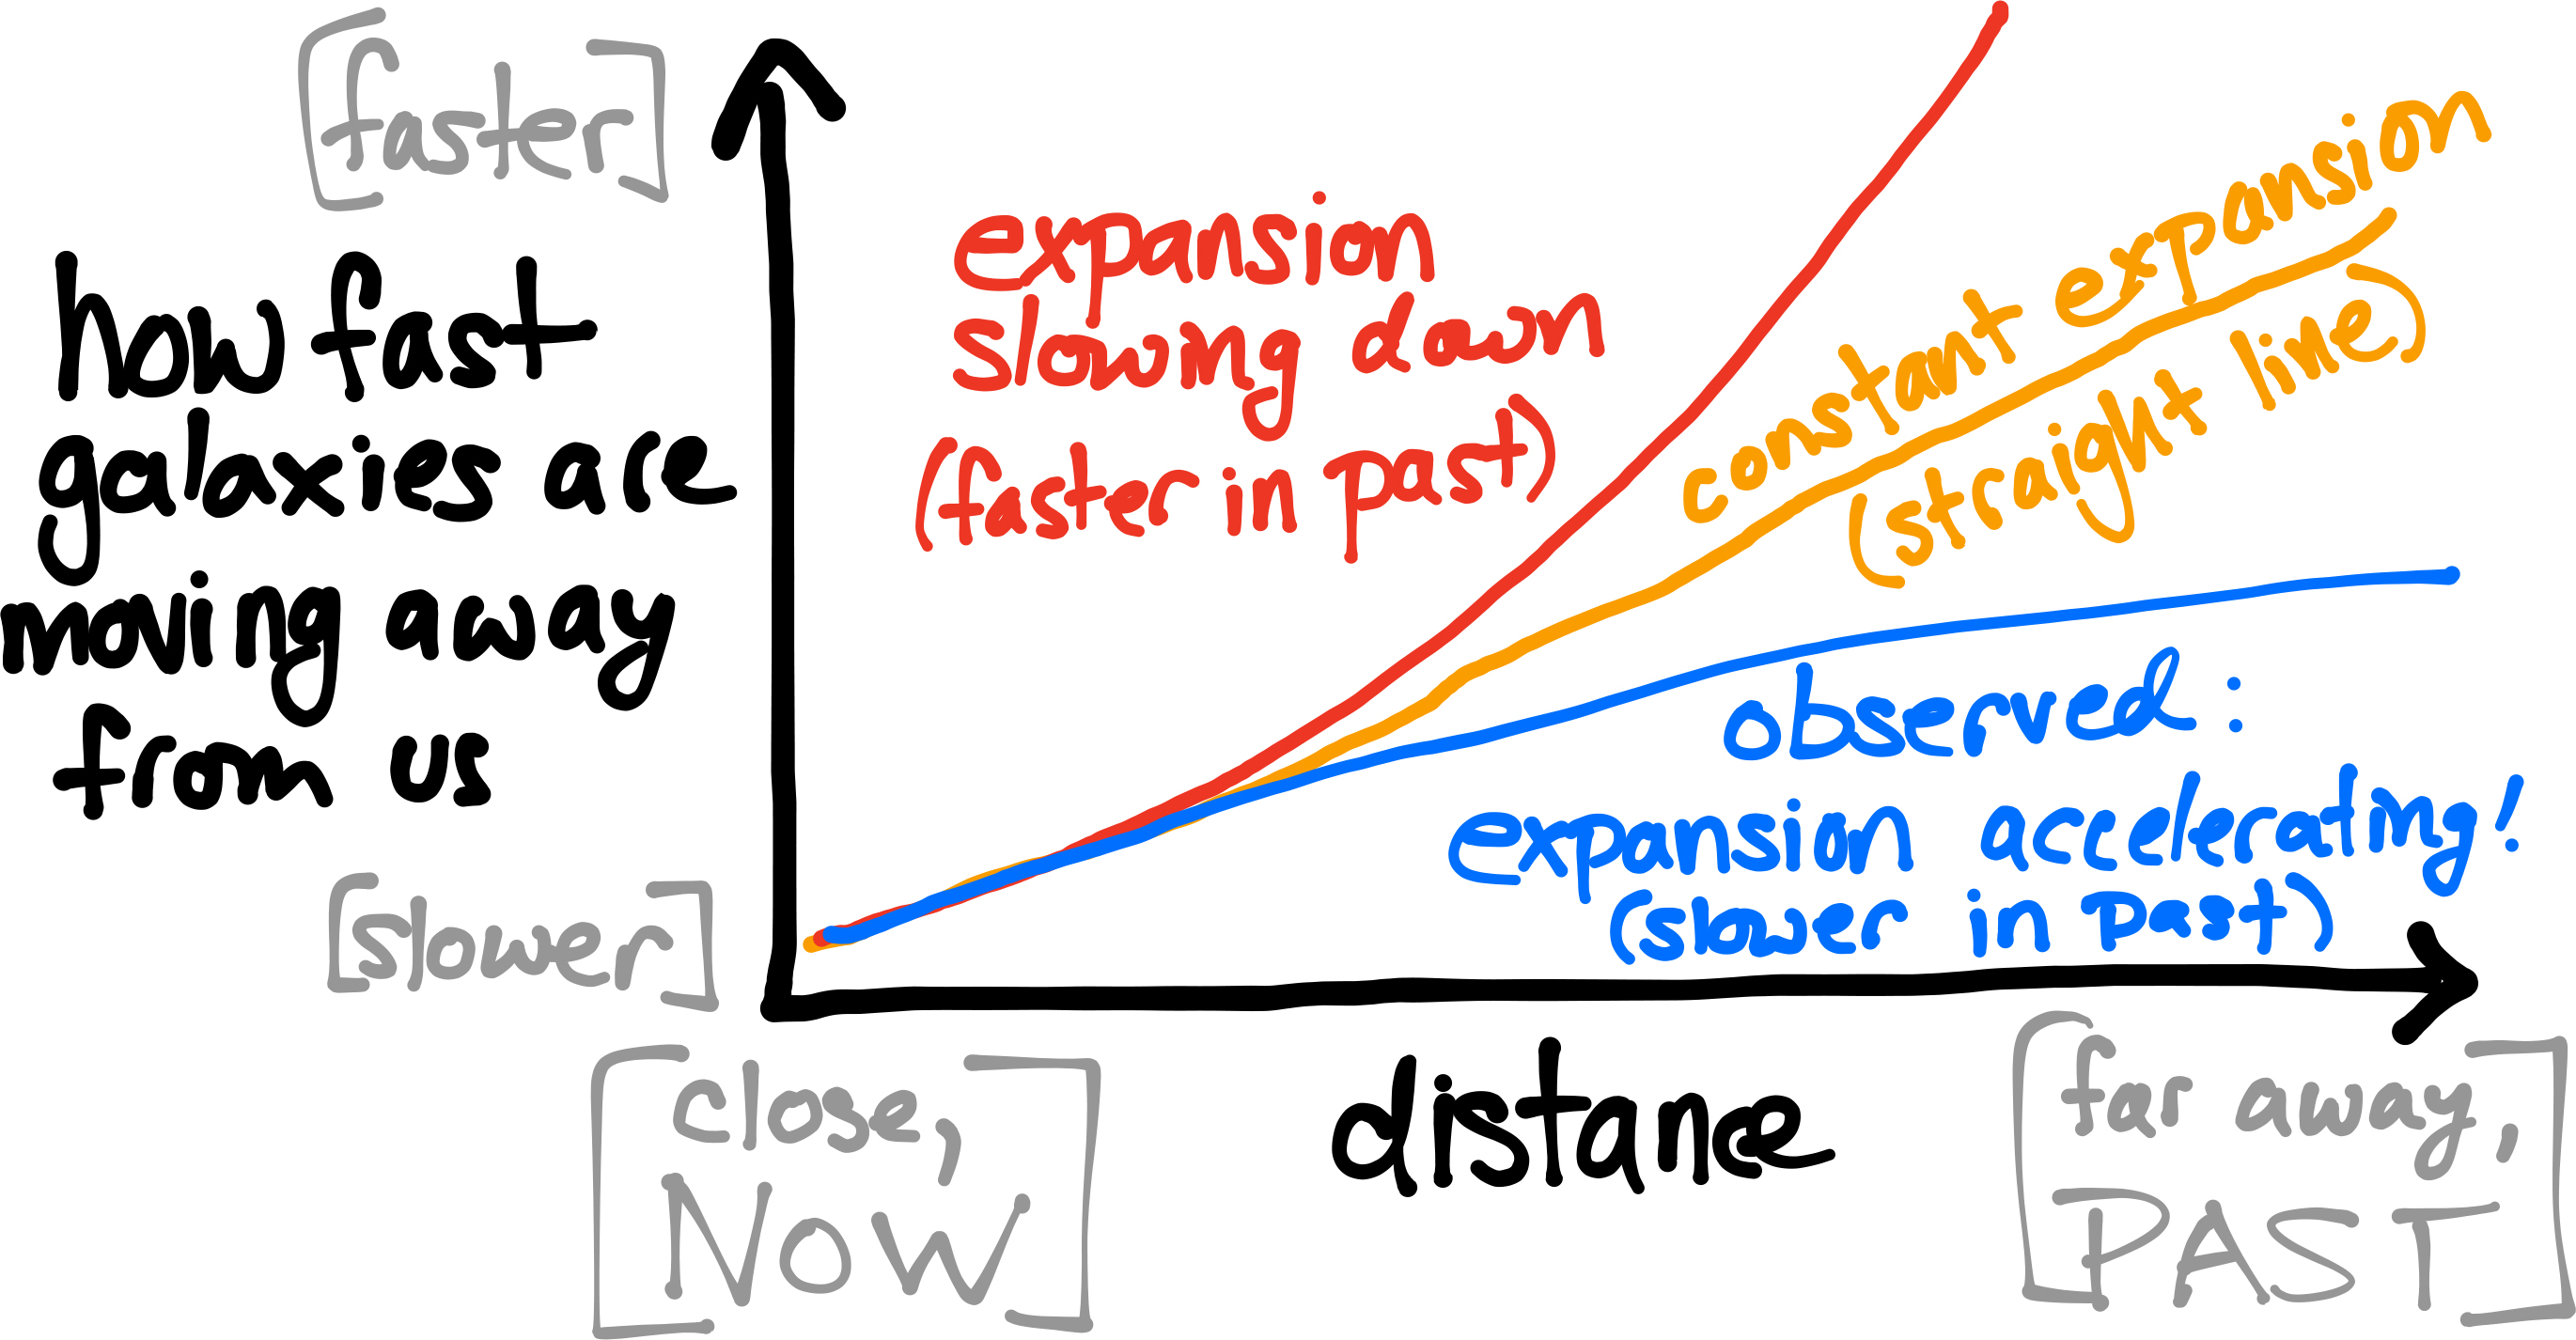 [faster]
how fast
galaxies are
moving away
from us
[slower]
expansion
slowing down
(faster in past)
constant expansion
(straight line)
observed:
expansion accelerating!
(slower in past)
[close,
NOW]
distance
[far away,
PAST]